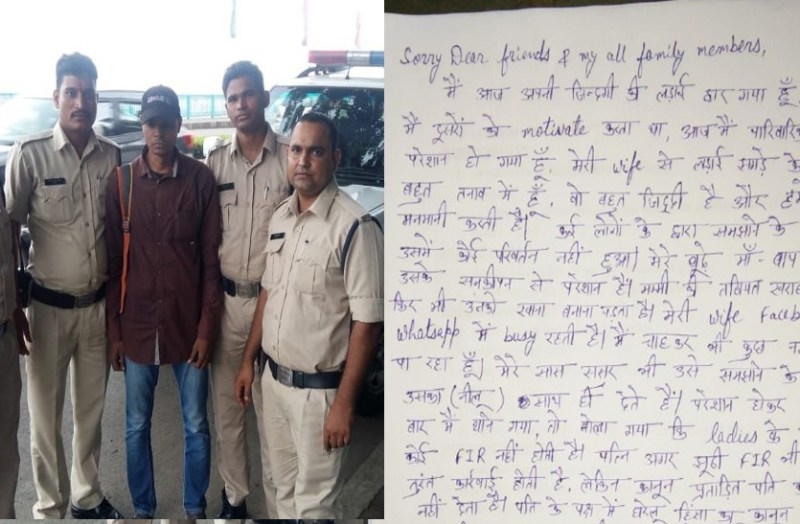 Sorry Dear friends & my all family members,
मैं आज अपनी जिन्दगी की लड़ाई हार गया हूँ
मैं दूसरों को motivate करता था, आज मैं पारिवारिक
परेशान हो गया हूँ. मेरी wife से लड़ाई झगड़े के
बहुत तनाव में हूँ. वो बहुत जिद्दी है और
मनमानी करती है। कई लोगों के द्वारा समझाने के
उसमें कोई परिवर्तन नहीं हुआ। मेरे बूढ़े माँ-बाप
उसके सनकीपन से परेशान हैं। मम्मी की तबियत खराब
फिर भी उनको खाना बनाना पड़ता है। मेरी wife Faceb
Whatsapp में busy रहती है। मैं चाहकर भी कुछ
पा रहा हूँ। मेरे सास ससुर भी उसे समझाने के
उसका (नीलू) साथ ही देते हैं। परेशान होकर
बार मैं थाने गया, तो बोला गया कि ladies के
कोई FIR नहीं होती है। पत्नि अगर झूठी FIR भी
तुरंत कार्रवाई होती है, लेकिन कानून प्रताड़ित पति
नहीं देता है। पति के पक्ष में घरेलू हिंसा का कानून